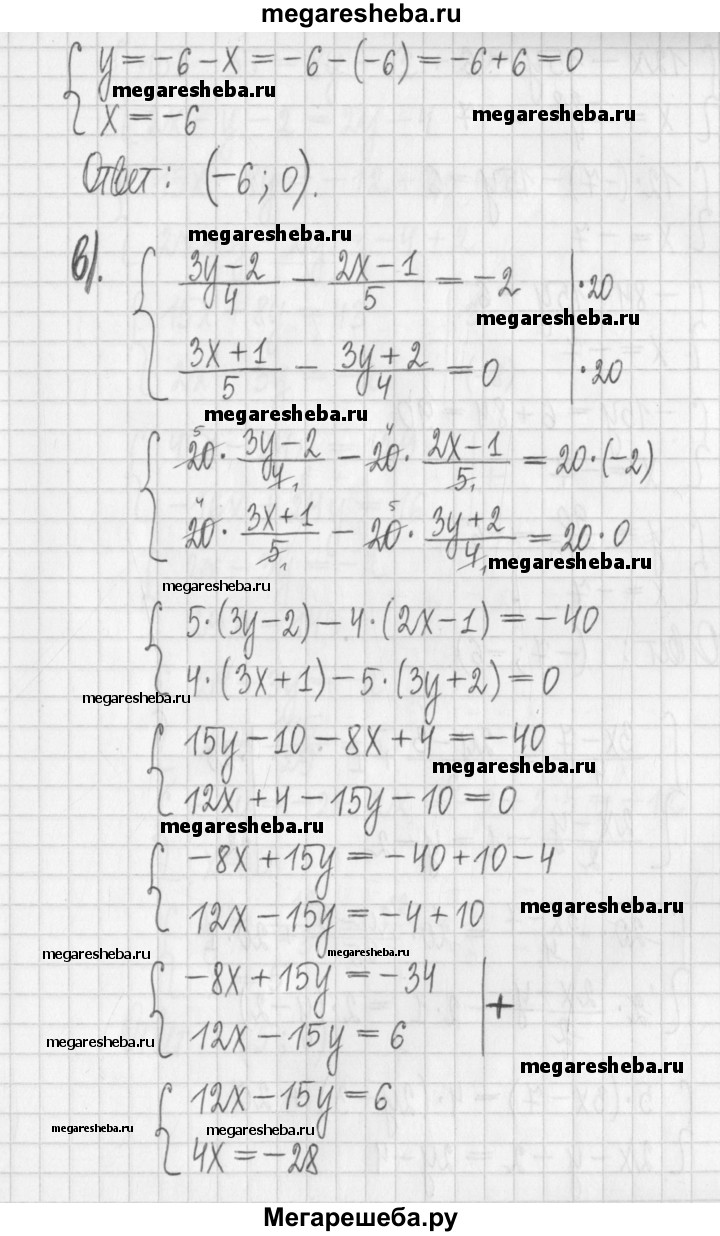 megaresheba.ru
y = -6 - x = -6 - (-6) = -6 + 6 = 0
megaresheba.ru
megaresheba.ru
x = -6
Ответ: (-6; 0).
megaresheba.ru
в). (3y-2)/4 - (2x-1)/5 = -2 | ·20
megaresheba.ru
(3x+1)/5 - (3y+2)/4 = 0 | ·20
megaresheba.ru
20⁵ · (3y-2)/4₁ - 20⁴ · (2x-1)/5₁ = 20·(-2)
20⁴ · (3x+1)/5₁ - 20⁵ · (3y+2)/4₁ = 20·0
megaresheba.ru
megaresheba.ru
5·(3y-2) - 4·(2x-1) = -40
4·(3x+1) - 5·(3y+2) = 0
megaresheba.ru
15y - 10 - 8x + 4 = -40
megaresheba.ru
12x + 4 - 15y - 10 = 0
megaresheba.ru
-8x + 15y = -40 + 10 - 4
megaresheba.ru
12x - 15y = -4 + 10
megaresheba.ru
megaresheba.ru
-8x + 15y = -34 | +
12x - 15y = 6
megaresheba.ru
megaresheba.ru
12x - 15y = 6
megaresheba.ru
megaresheba.ru
4x = -28
Мегарешеба.ру